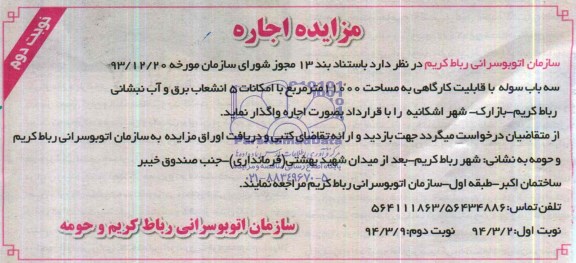 مزایده اجاره
نوبت دوم
سازمان اتوبوسرانی رباط کریم در نظر دارد باستناد بند ۱۳ مجوز شورای سازمان مورخه ۹۳/۱۲/۲۰
سه باب سوله با قابلیت کارگاهی به مساحت ۱۱۰۰۰ مترمربع با امکانات ۵ انشعاب برق و آب نبشانی
رباط کریم-بازارک- شهر اشکانیه را با قرارداد بصورت اجاره واگذار نماید.
از متقاضیان درخواست میگردد جهت بازدید و ارائه تقاضای کتبی و دریافت اوراق مزایده به سازمان اتوبوسرانی رباط کریم
و حومه به نشانی: شهر رباط کریم-بعد از میدان شهید بهشتی(فرمانداری)-جنب صندوق خیبر
ساختمان اکبر-طبقه اول-سازمان اتوبوسرانی رباط کریم مراجعه نمایند.
۰۲۱-۸۸۳۴۹۶۷۰-۵
تلفن تماس: ۵۶۴۱۱۱۸۶۳/۵۶۴۳۴۸۸۶
نوبت اول: ۹۴/۳/۲ نوبت دوم: ۹۴/۳/۹
سازمان اتوبوسرانی رباط کریم و حومه